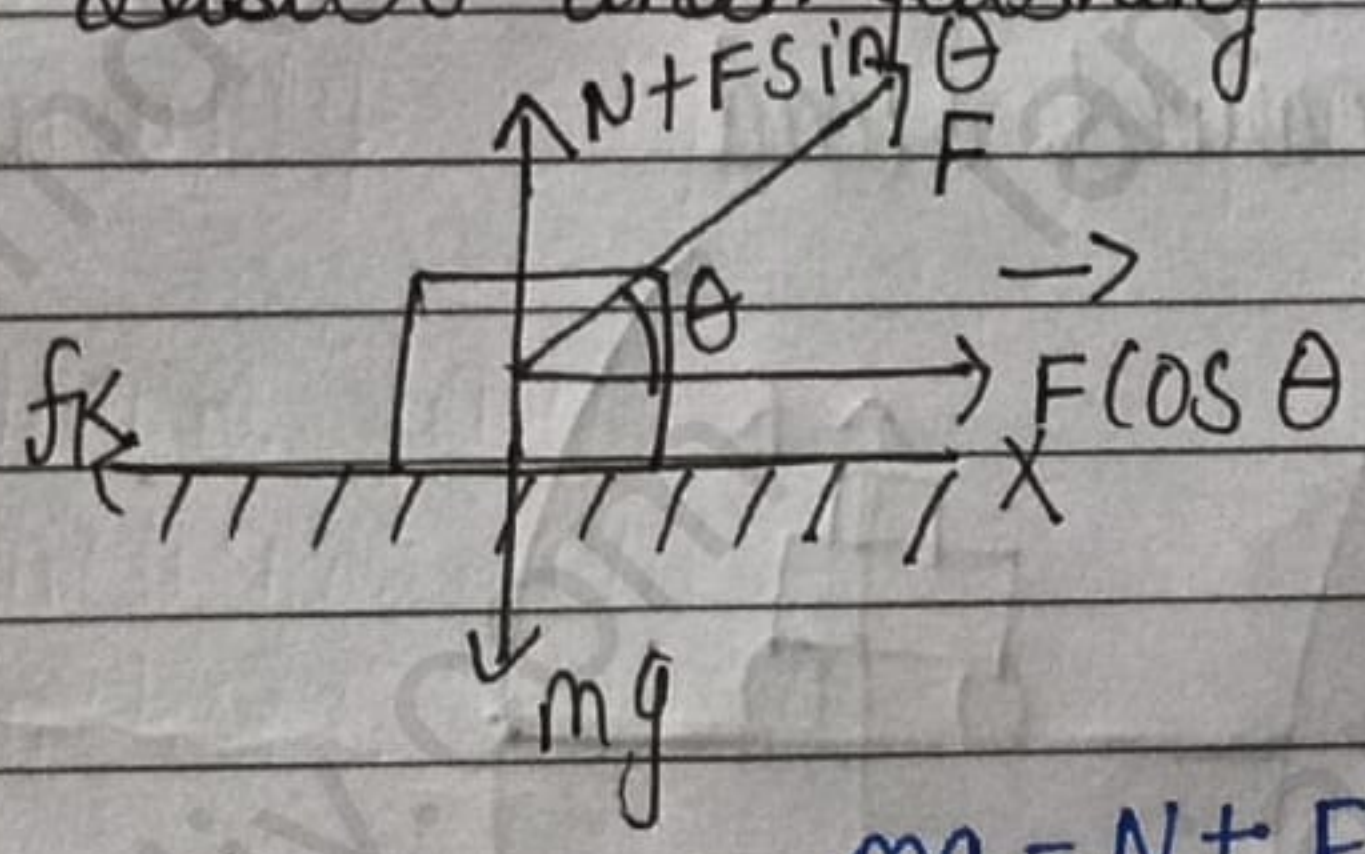 N+FSinθ
F
θ
fk
FCOS θ
X
mg
mg = N +